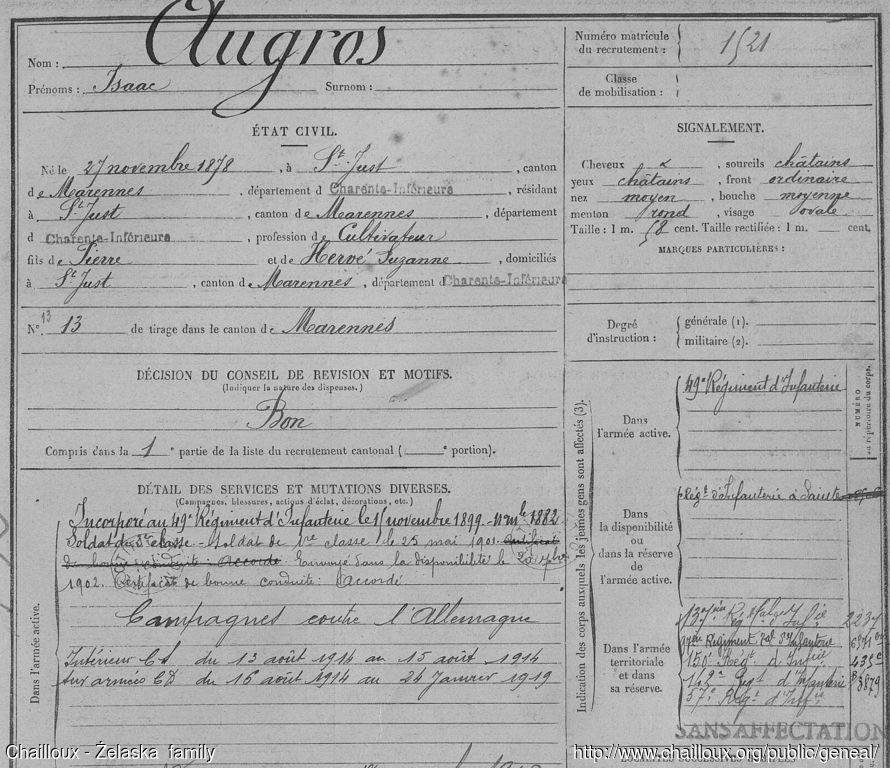 Augros
Nom :
Prénoms : Isaac Surnom :
ÉTAT CIVIL.
Né le 27 novembre 1878 , à St. Just , canton
de Marennes , département d Charente-Inférieure , résidant
à St. Just , canton de Marennes , département
d Charente-Inférieure , profession de Cultivateur
fils de Pierre et de Hervé Suzanne , domiciliés
à St. Just , canton de Marennes , département d Charente-Inférieure
13
N° 13 de tirage dans le canton de Marennes
DÉCISION DU CONSEIL DE REVISION ET MOTIFS.
(Indiquer la nature des dispenses.)
Bon
Compris dans la 1 e partie de la liste du recrutement cantonal ( e portion).
DÉTAIL DES SERVICES ET MUTATIONS DIVERSES.
(Campagnes, blessures, actions d'éclat, décorations, etc.)
Incorporé au 49e Régiment d'Infanterie le 15 novembre 1899. - 1882
Soldat de 2e classe - Soldat de 1re classe le 25 mai 1901. Certificat
de bonne conduite : Accordé Envoyé dans la disponibilité le
1902. Certificat de bonne conduite : Accordé
Campagnes contre l'Allemagne
Intérieur CS du 13 août 1914 au 15 août 1914
aux armées CD du 16 août 1914 au 24 Janvier 1919
Dans l'armée active.
Numéro matricule
du recrutement : 1521
Classe
de mobilisation :
SIGNALEMENT.
Cheveux x , sourcils châtains
yeux châtains , front ordinaire
nez moyen , bouche moyenne
menton rond , visage ovale
Taille : 1 m. 58 cent. Taille rectifiée : 1 m. cent.
MARQUES PARTICULIÈRES :
Degré
d'instruction :
générale (1).
militaire (2).
Indication des corps auxquels les jeunes gens sont affectés (3).
NUMÉRO
au répertoire du corps.
Dans
l'armée active.
49e Régiment d'Infanterie
Dans
la disponibilité
ou
dans la réserve
de
l'armée active.
Régt d'Infanterie à Saintes
Dans l'armée
territoriale
et dans
sa réserve.
137 Rég Infie 2237
Régiment d'Infanterie
150e Régt d'Infie
142e Regt d'Infanterie 3879
57e Regt d'Infie
SANS AFFECTATION
LOCALITÉS SUCCESSIVES HABITÉES
Chailloux - Żelaska family
http://www.chailloux.org/public/geneal/